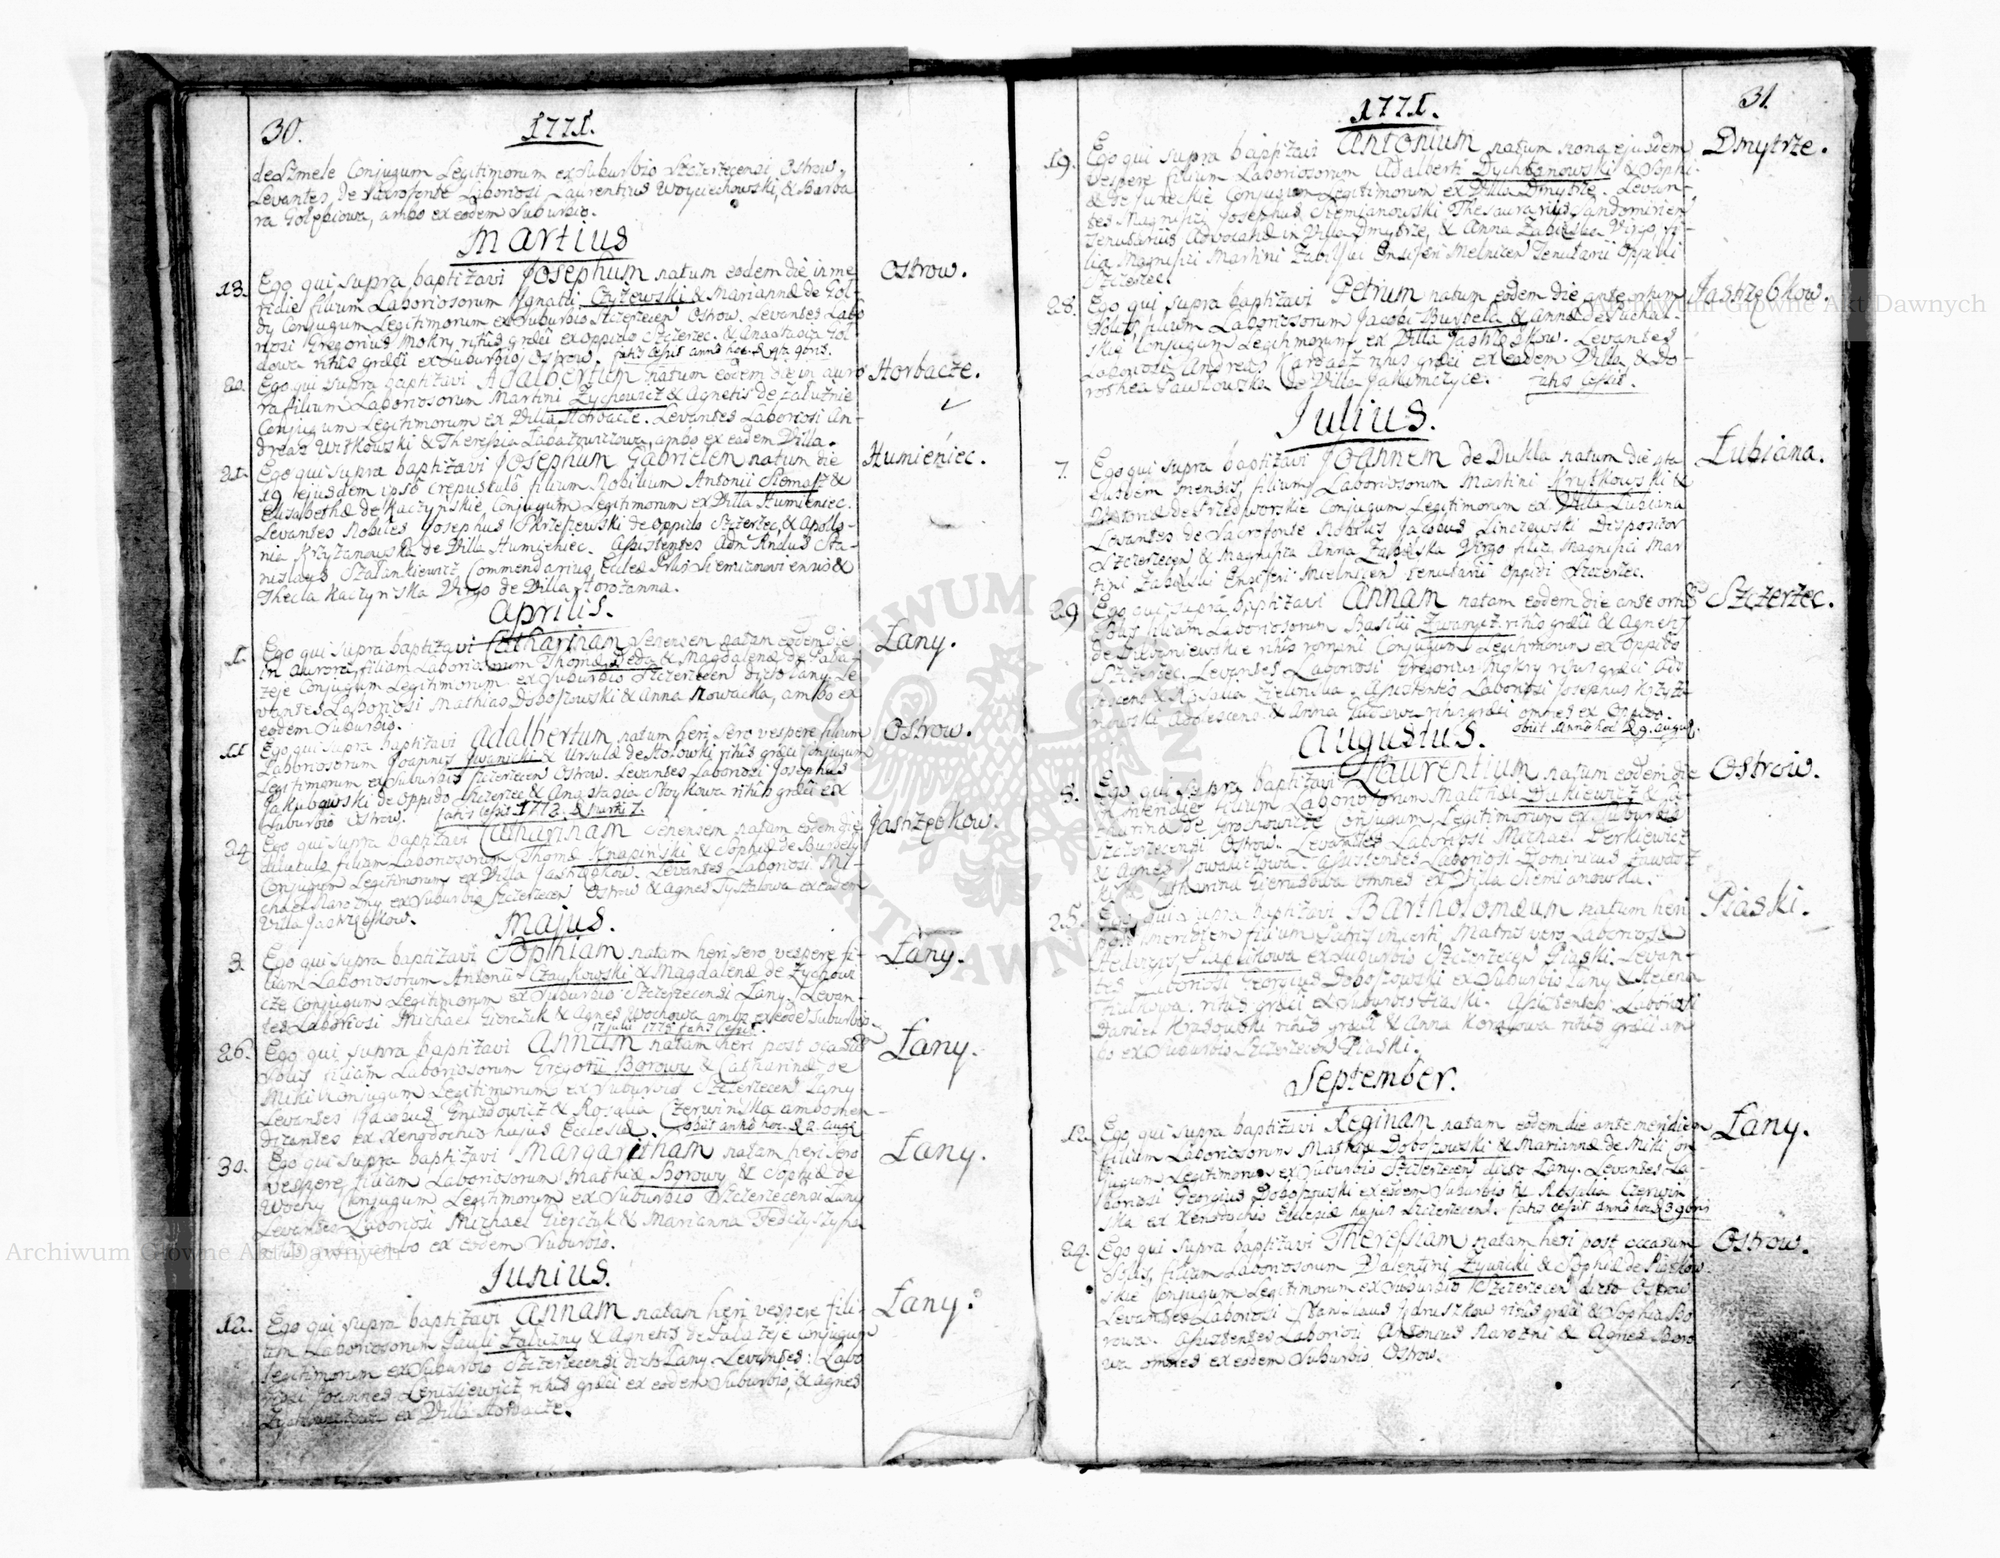 30.
1771.
de Szmele Conjugum Legitimorum ex Suburbio Szczerzecensi Ostrow.
Levantes, de Sacrofonte Laboriosi Laurentius Woyciechowski, & Barba
ra Gołębiowa, ambo ex eodem Suburbio.
Martius
13. Ego qui supra baptizavi Josephum natum eodem die in me
Ostrow.
ridie filium Laboriosorum Ignatii Czyżewski & Mariannæ de Gol-
dy Conjugum Legitimorum ex Suburbio Szczerzecen Ostrow. Levantes Labo
riosi Gregorius Mokry ritus græci ex oppido Szczerzec. & Anastasia Gol-
dowa ritus græci ex Suburbio Ostrow. fatis cessit anno hoc
20. Ego qui supra baptizavi Adalbertum natum eodem die in auro
Horbacze.
ra filium Laboriosorum Martini Zychowicz & Agnetis de Załużnie
Conjugum Legitimorum ex Villa Horbacze. Levantes Laboriosi An-
dreas Witkowski & Theressia ambo ex eadem Villa.
21. Ego qui supra baptizavi Josephum Gabrielem natum die
Humieniec.
19 hejusdem ipso crepusculo filium Nobilium Antonii &
Elisabethæ de Kaczynskie Conjugum Legitimorum ex Villa Humieniec.
Levantes Nobiles Josephus Skrzeszewski de oppido Szczerzec, & Apollo-
nia Krzyżanowska de Villa Humieniec. Assistentes Adm Rndus Sta-
nislaus Szałankiewicz Commendarius Eccles Siemianoviensis &
Thecla Kaczynska Virgo de Villa Horożanna.
Aprilis.
1. Ego qui supra baptizavi Catharinam Senensem natam eodem die
Łany.
in aurora, filiam Laboriosorum Thomæ Deda & Magdalenæ de Pała-
zeje Conjugum Legitimorum ex Suburbio Szczerzecen dicto Łany. Le
vantes Laboriosi Mathias Doboszowski & Anna Nowacka, ambo ex
eodem Suburbio.
11. Ego qui supra baptizavi Adalbertum natum heri sero vespere filium
Ostrow.
Laboriosorum Joannis Iwanicki & Ursulæ de ritus græci Conjugum
Legitimorum ex Suburbio Szczerzecen Ostrow. Levantes Laboriosi Josephus
Jakubowski de oppido Szczerzec & Anastasia ritus græci ex
Suburbio Ostrow. fatis cessit 1773.
24. Ego qui supra baptizavi Catharinam Senensem natam eodem die
Jastrzębkow.
diluculo filiam Laboriosorum Thomæ Knapinski & Sophiæ de
Conjugum Legitimorum ex Villa Jastrzębkow. Levantes Laboriosi Mi-
chael Narozny ex Suburbio Szczerzecen Ostrow & Agnes ex eadem
Villa Jastrzębkow.
Majus.
3. Ego qui supra baptizavi Sophiam natam heri sero vespere fi-
Łany.
liam Laboriosorum Antonii Szaykowski & Magdalenæ de Zychowi
cze Conjugum Legitimorum ex Suburbio Szczerzecensi Łany. Levan-
tes Laboriosi Michael Gierczyk & Agnes Wochowa ambo ex eode Suburbio
17 Julii 1775 fatis cessit.
26. Ego qui supra baptizavi Annam natam heri post ocasum
Łany.
Solis filiam Laboriosorum Gregorii Borowy & Catharinæ de
Miki Conjugum Legitimorum ex Suburbio Szczerzecens Łany
Levantes & Rosalia Czerwinska ambo men
dicantes ex Xenodochio hujus Ecclesiæ. obiit anno hoc
30. Ego qui supra baptizavi Margaritham natam heri sero
Łany.
vespere filiam Laboriosorum Mathiæ Borowy & Sophiæ de
Wochy Conjugum Legitimorum ex Suburbio Szczerzecensi Łany
Levantes Laboriosi Michael Gierczyk & Marianna
ambo ex eodem Suburbio.
Junius.
12. Ego qui supra baptizavi Annam natam heri vespere fili-
Łany.
am Laboriosorum Pauli Załuzny & Agnetis de Pałazeje Conjugum
Legitimorum ex Suburbio Szczerzecensi dicto Łany. Levantes: Labo
riosi Joannes ritus græci ex eodem Suburbio, & Agnes
ex Villa Horbacze.
1771.
31.
19. Ego qui supra baptizavi Antonium natum nona ejusdem
Dmytrze.
vespere filium Laboriosorum Adalberti & Sophi-
æ Conjugum Legitimorum ex Villa Dmytrze. Levan-
tes Magnifici Josephus Siemianowski Thesaurarius Sandomirien
Tenutarius Advocatiæ in Villa Dmytrze, & Anna Zabielska Virgo fi-
lia Magnifici Martini Zabielski Ensiferi Mielnicen Tenutarii Oppidi
Szczerzec.
28. Ego qui supra baptizavi Petrum natum eodem die ante ortum
Jastrzębkow.
Solis filium Laboriosorum Jacobi Bursela & Annæ de
skie Conjugum Legitimorum ex Villa Jastrzębkow. Levantes
Laboriosi Andreas Kardasz ritus græci ex eadem Villa & Do
rothea Pawłowska de Villa Jakimczyce. fatis cessit.
Julius.
7. Ego qui supra baptizavi Joannem de Dukla natum die 4ta
Łubiana.
eiusdem mensis, filium Laboriosorum Martini Krytkowski &
de Przedworskie Conjugum Legitimorum ex Villa Łubiana
Levantes de Sacrofonte Nobilis Jacobus Linczewski Dispositor
Szczerzecen & Magnifica Anna Zabielska Virgo filia Magnifici Mar
tini Zabielski Ensiferi Mielnicen Tenutarii Oppidi Szczerzec.
29. Ego qui supra baptizavi Annam natam eodem die ante ortu
Szczerzec.
Solis filiam Laboriosorum Basilii ritus græci & Agnetis
de ritus romani Conjugum Legitimorum ex Oppido
Szczerzec. Levantes Laboriosi Gregorius Mokry ritus græci Ado-
lescens & Rosalia Zielinska. Assistentes Laboriosi Josephus Krzyża
nowski Adolescens & Anna ritus græci omnes ex Oppido
obiit anno hoc d 9. augus.
Augustus.
8. Ego qui supra baptizavi Laurentium natum eodem die
Ostrow.
in meridie filium Laboriosorum Matthæi Dukiewicz & Ca-
tharinæ de Grochowicze Conjugum Legitimorum ex Suburbio
Szczerzecensi Ostrow. Levantes Laboriosi Michael Derkiewicz
& Agnes Nowakiczowa. Assistentes Laboriosi Dominicus
& Catharina omnes ex Villa Siemianowka.
25. Ego qui supra baptizavi Bartholomæum natum heri
Piaski.
post meridiem filium Patris incerti, Matris vero Laboriosæ
Hedvigis ex Suburbio Szczerzecen Piaski. Levan-
tes Laboriosi Georgius Doboszowski ex Suburbio Łany & Helena
ritus græci ex Suburbio Piaski. Assistentes Laboriosi
Daniel ritus græci & Anna ritus græci am
bo ex Suburbio Szczerzecens Piaski.
September.
12. Ego qui supra baptizavi Reginam natam eodem die ante meridiem
Łany.
filiam Laboriosorum Mathiæ Doboszowski & Mariannæ de Miki Con
jugum Legitimorum ex Suburbio Szczerzecen dicto Łany. Levantes La-
boriosi Georgius Doboszowski ex eodem Suburbio & Rosalia Czerwin
ska ex Xenodochio Ecclesiæ hujus Szczerzecens. fatis cessit anno hoc
29. Ego qui supra baptizavi Theressiam natam heri post occasum
Ostrow.
Solis, filiam Laboriosorum Valentini Zywicki & Sophiæ de Piaskow
skie Conjugum Legitimorum ex Suburbio Szczerzecen dicto Ostrow
Levantes Laboriosi Stanislaus ritus græci & Sophia Bo
rowa. Assistentes Laboriosi Antonius Narozni & Agnes Boro
wa omnes ex eodem Suburbio Ostrow.
Archiwum Główne Akt Dawnych